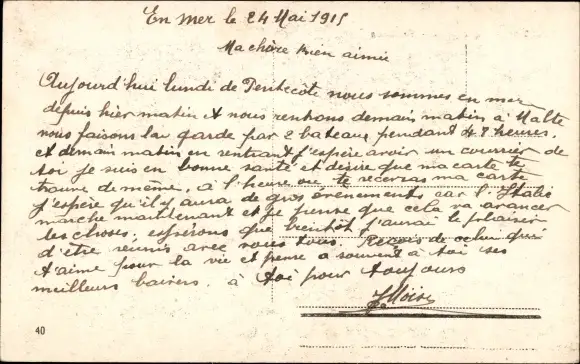 En mer le 24 Mai 1915
Ma chère bien aimée
Aujourd'hui lundi de Pentecôte nous sommes en mer
depuis hier matin et nous rentrons demain matin à Malte
nous faisons la garde par 2 bateaux pendant 48 heures.
et demain matin en rentrant j'espère avoir un courrier de
toi je suis en bonne santé et désire que ma carte te
trouve de même. à l'heure ou te recevras ma carte
j'espère qu'il y aura de gros évènements car l'Italie
marche maintenant et je pense que cela va avancer
les choses. espérons que bientôt j'aurai le plaisir
d'être réunis avec vous tous. Reçois de celui qui
t'aime pour la vie et pense a souvent à toi ses
meilleurs baisers. à toi pour toujours
40